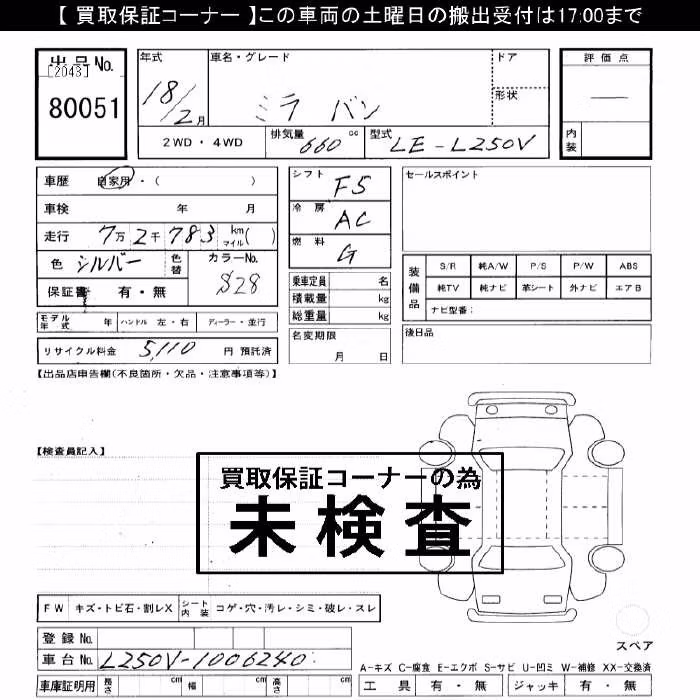 【 買取保証コーナー 】この車両の土曜日の搬出受付は17:00まで
出品No.
[2043]
80051
年式
18/2月
車名・グレード
ミラ バン
ドア
形状
評価点
―
内装
2WD・4WD
排気量 660 cc
型式 LE-L250V
車歴 自家用・( )
車検 年 月
走行 7万2千783 km マイル( )
色 シルバー 色替 カラーNo. S28
保証書 有・無
シフト F5
冷房 AC
燃料 G
乗車定員 名
積載量 kg
総重量 kg
セールスポイント
装備品
S/R 純A/W P/S P/W ABS
純TV 純ナビ 革シート 外ナビ エアB
ナビ型番:
モデル年式 年 ハンドル 左・右 ディーラー・並行
名変期限
月 日
後日品
リサイクル料金 5,110 円 預託済
【出品店申告欄(不良箇所・欠品・注意事項等)】
【検査員記入】
買取保証コーナーの為
未検査
FW キズ・トビ石・割レX シート内装 コゲ・穴・汚レ・シミ・破レ・スレ
登録No.
車台No. L250V-1006240
車庫証明用 長さ cm 幅 cm 高さ cm
スペア
A-キズ C-腐食 E-エクボ S-サビ U-凹ミ W-補修 XX-交換済
工具 有・無 ジャッキ 有・無